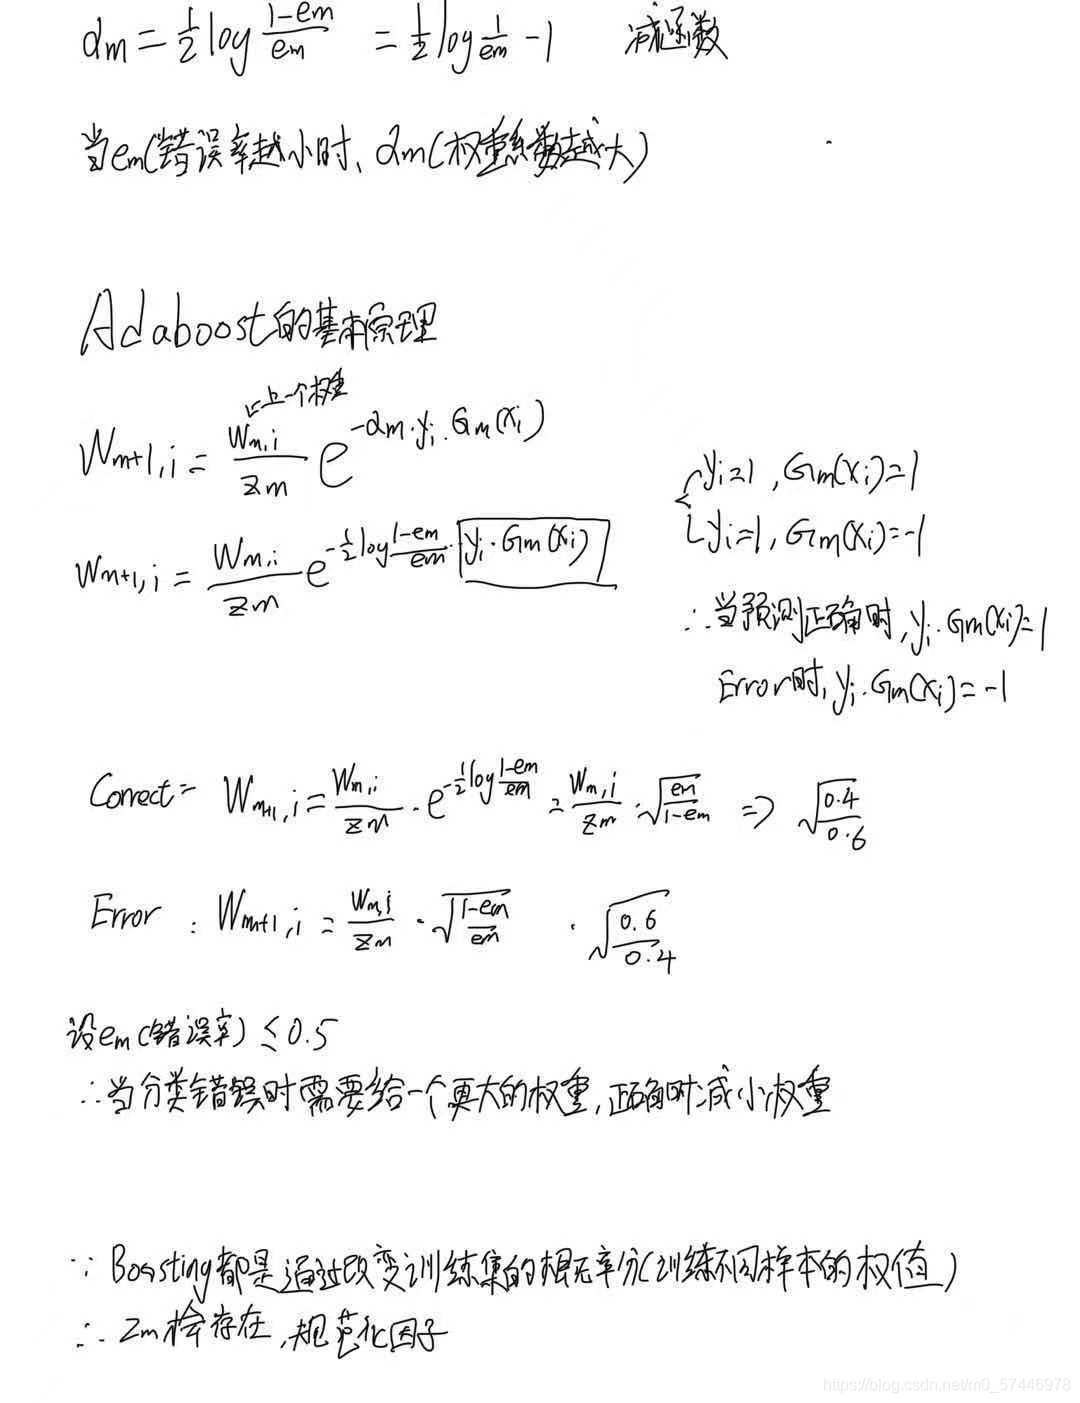 αm = 1/2 log (1-em)/em = 1/2 log 1/em - 1 减函数
当em(错误率越小时、αm(权重系数越大)
Adaboost的基本原理
↙上一个权重
Wm+1,i = Wm,i/Zm e^(-αm·yi·Gm(xi))
Wm+1,i = Wm,i/Zm e^(-1/2 log (1-em)/em · yi·Gm(xi))
yi=1, Gm(xi)=1
yi=1, Gm(xi)=-1
∴当预测正确时, yi·Gm(xi)=1
Error时, yi·Gm(xi)=-1
Correct= Wm+1,i = Wm,i/Zm · e^(-1/2 log (1-em)/em) = Wm,i/Zm · √(em/(1-em)) => √(0.4/0.6)
Error : Wm+1,i = Wm,i/Zm · √((1-em)/em) · √(0.6/0.4)
设em(错误率) ≤ 0.5
∴当分类错误时需要给一个更大的权重, 正确时减小权重
∵ Boosting都是通过改变训练集的概率分(训练不同样本的权值)
∴ Zm 存在, 规范化因子
https://blog.csdn.net/m0_57446978